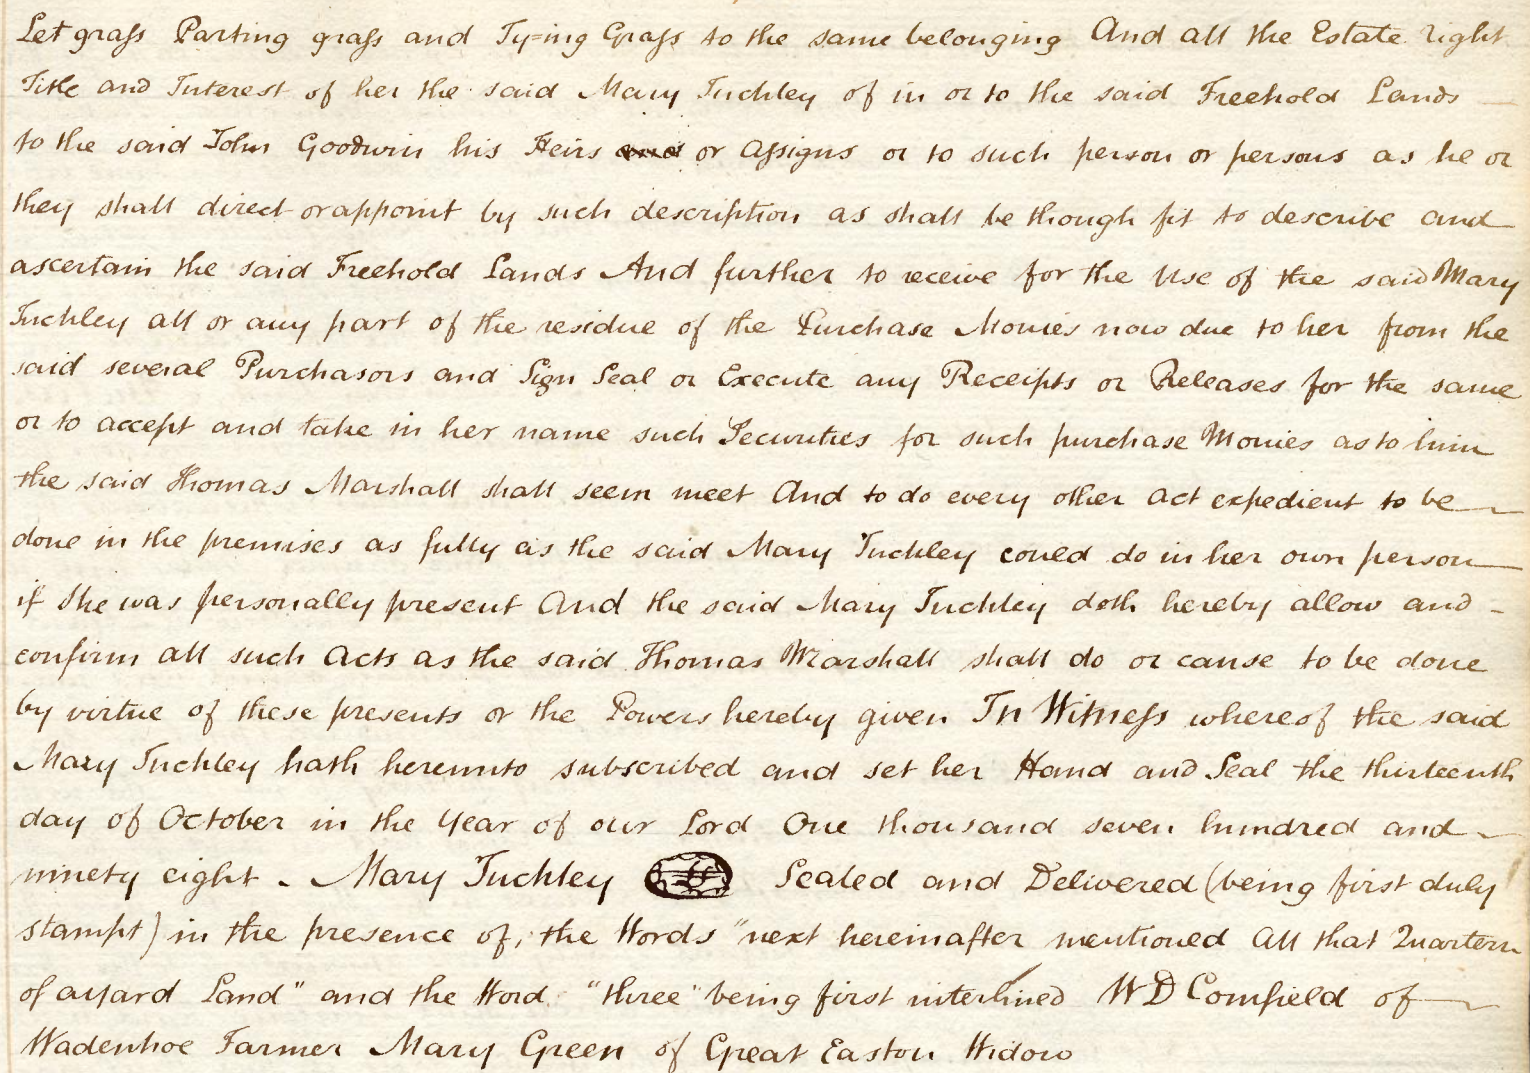 Let grass Parting grass and Ty=ing Grass to the same belonging And all the Estate right
Title and Interest of her the said Mary Tuchley of in or to the said Freehold Lands
to the said John Goodwin his Heirs and or assigns or to such person or persons as he or
they shall direct or appoint by such description as shall be though fit to describe and
ascertain the said Freehold Lands And further to receive for the Use of the said Mary
Tuchley all or any part of the residue of the Purchase Monies now due to her from the
said several Purchasors and Sign Seal or Execute any Receipts or Releases for the same
or to accept and take in her name such Securities for such purchase Monies as to him
the said Thomas Marshall shall seem meet And to do every other act expedient to be
done in the premises as fully as the said Mary Tuchley could do in her own person
if She was personally present And the said Mary Tuchley doth hereby allow and -
confirm all such Acts as the said Thomas Marshall shall do or cause to be done
by virtue of these presents or the Powers hereby given In Witness whereof the said
Mary Tuchley hath hereunto subscribed and set her Hand and Seal the thirteenth
day of October in the Year of our Lord One thousand seven hundred and
ninety eight - Mary Tuchley Sealed and Delivered (being first duly
stampt) in the presence of, the Words "next hereinafter mentioned All that Quartern
of a Yard Land" and the Word "three" being first interlined W D Comfield of
Wadenhoe Farmer Mary Green of Great Easton Widow